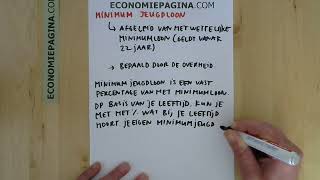 ECONOMIEPAGINA.COM
ECONOMIEPAGINA.COM
MINIMUM JEUGDLOON
↳ AFGELEID VAN HET WETTELIJKE
MINIMUMLOON (GELDT VANAF
22 JAAR)
↳ BEPAALD DOOR DE OVERHEID
MINIMUM JEUGDLOON IS EEN VAST
PERCENTAGE VAN HET MINIMUMLOON.
OP BASIS VAN JE LEEFTIJD. KUN JE
MET HET % WAT BIJ JE LEEFTIJD
HOORT JE EIGEN MINIMUMJEUGD